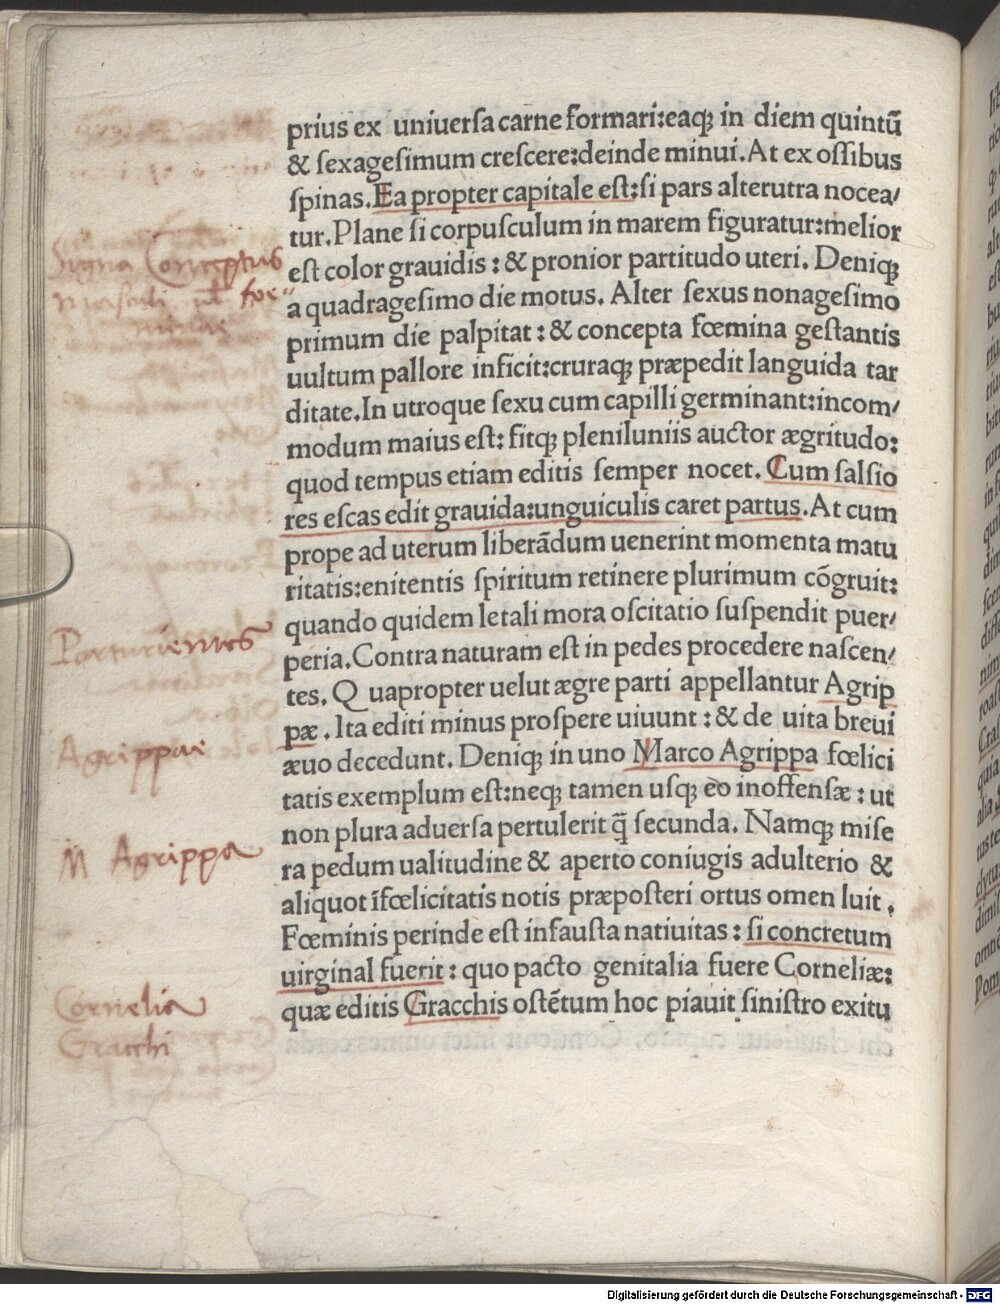 prius ex uniuerſa carne formari:eaq; in diem quintū
& ſexageſimum creſcere:deinde minui.At ex oſſibus
ſpinas.Ea propter capitale eſt:ſi pars alterutra nocea/
tur.Plane ſi corpuſculum in marem figuratur:melior
eſt color grauidis : & pronior partitudo uteri. Deniq;
a quadrageſimo die motus. Alter ſexus nonageſimo
primum die palpitat : & concepta fœmina geſtantis
uultum pallore inficit:cruraq; præpedit languida tar
ditate.In utroque ſexu cum capilli germinant:incom/
modum maius eſt: fitq; pleniluniis auctor ægritudo:
quod tempus etiam editis ſemper nocet. Cum ſalſio
res eſcas edit grauida:unguiculis caret partus.At cum
prope ad uterum liberādum uenerint momenta matu
ritatis:enitentis ſpiritum retinere plurimum cōgruit:
quando quidem letali mora oſcitatio ſuſpendit puer/
peria.Contra naturam eſt in pedes procedere naſcen/
tes. Q uapropter uelut ægre parti appellantur Agrip
pæ . Ita editi minus proſpere uiuunt : & de uita breui
æuo decedunt. Deniq; in uno Marco Agrippa fœlici
tatis exemplum eſt:neq; tamen uſq; eo inoffenſæ : ut
non plura aduerſa pertulerit q̄ ſecunda. Namq; miſe
ra pedum ualitudine & aperto coniugis adulterio &
aliquot īfœlicitatis notis præpoſteri ortus omen luit .
Fœminis perinde eſt infauſta natiuitas : ſi concretum
uirginal fuerit : quo pacto genitalia fuere Corneliæ:
quæ editis Gracchis oſtētum hoc piauit ſiniſtro exitu
Signa Conceptus
masculi ul foe-
Parturientes
Agrippae
M Agrippa
Cornelia
Gracchi
Digitalisierung gefördert durch die Deutsche Forschungsgemeinschaft - DFG